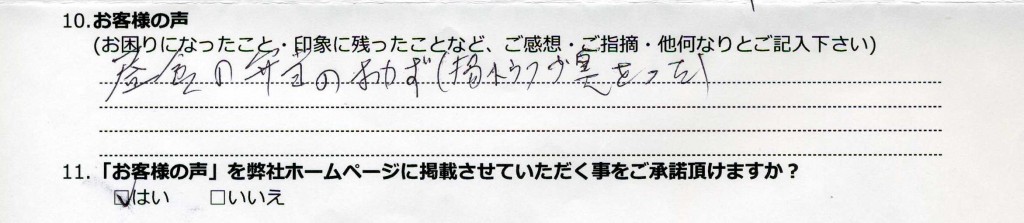 10.お客様の声
(お困りになったこと・印象に残ったことなど、ご感想・ご指摘・他何なりとご記入下さい)
昼食の弁当のおかず(揚
11.「お客様の声」を弊社ホームページに掲載させていただく事をご承諾頂けますか?
☑はい □いいえ